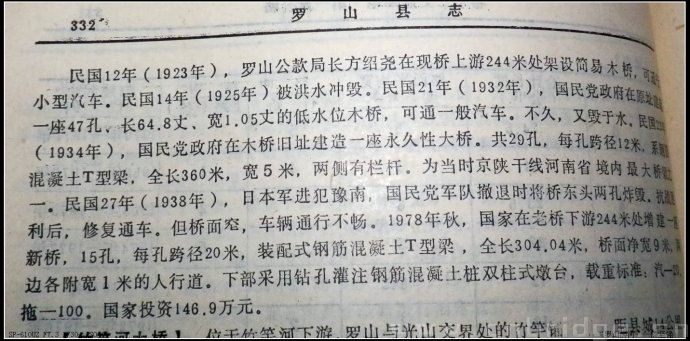 332
罗山县志
民国12年(1923年),罗山公款局长方绍尧在现桥上游244米处架设简易木桥,可通
小型汽车。民国14年(1925年)被洪水冲毁。民国21年(1932年),国民党政府在原址
一座47孔、长64.8丈、宽1.05丈的低水位木桥,可通一般汽车。不久,又毁于水,民国
(1934年),国民党政府在木桥旧址建造一座永久性大桥。共29孔,每孔跨径12米,
混凝土T型梁,全长360米,宽5米,两侧有栏杆。为当时京陕干线河南省境内最大桥
一。民国27年(1938年),日本军进犯豫南,国民党军队撤退时将桥东头两孔炸毁。
利后,修复通车。但桥面窄,车辆通行不畅。1978年秋,国家在老桥下游244米处增建一
新桥,15孔,每孔跨径20米,装配式钢筋混凝土T型梁,全长304.04米,桥面净宽9米,
边各附宽1米的人行道。下部采用钻孔灌注钢筋混凝土桩双柱式墩台,载重标准:汽—20,
拖—100。国家投资146.9万元。
位于竹竿河下游,罗山与光山交界处的竹竿 距县城